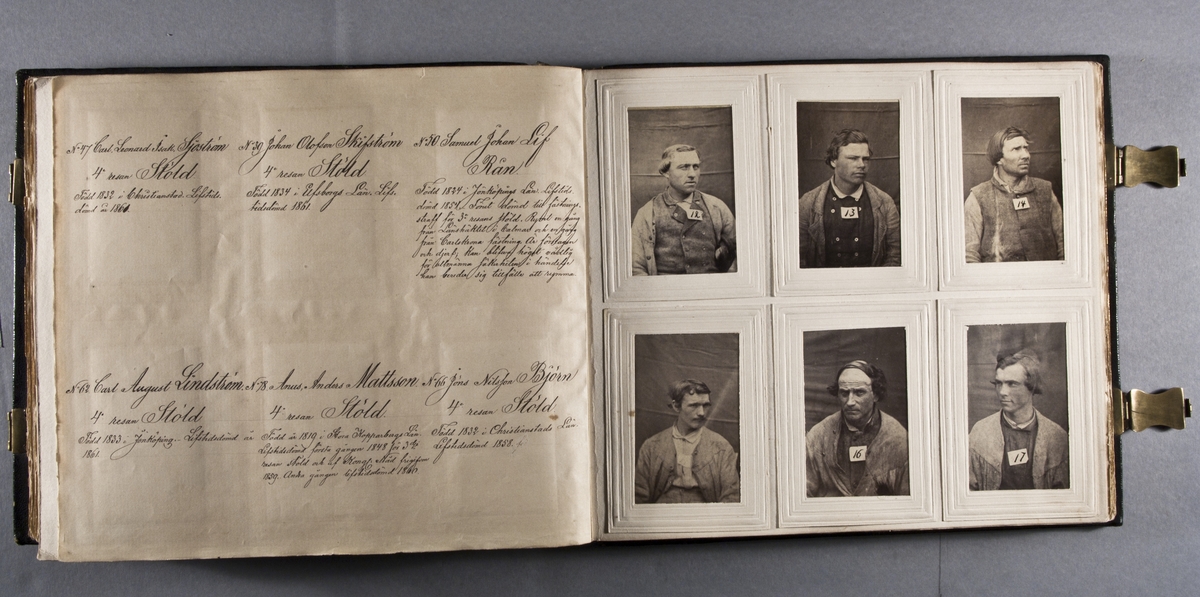 N:47 Carl Leonard Isak Sjöström
4e resan Stöld
Född 1832 i Christianstad. Lifstids-
dömd år 1861.
N:39 Johan Olofson Skifström
4e resan Stöld
Född 1834 i Elfsborgs Län. Lifs-
tidsdömd 1861.
N:50 Samuel Johan Lif
Rån
Född 1824 i Jönköpings Län. Lifstids
dömd 1854. Förut dömd till fästnings-
straff för 3e resans stöld. Rymt en gång
från Länshäktet i Calmar och en gång
från Carlskrona fästning. Är förslagen
och djerf; kan blifva högst vådlig
för allmänna säkerheten i händelse
han bereder sig tillfälle att rymma
N:62 Carl August Lindström
4e resan Stöld
Född 1833 i Jönköping. Lifstidsdömd år
1861.
N:78 Anus, Anders Mattsson
4e resan Stöld.
Född år 1819 i Stora Kopparbergs Län
Lifstidsdömd första gången 1848 för 3dje
resan stöld och af Kongl. Maj:t
1859. Andra gången lifstidsdömd 1860
N:66 Jöns Nilsson Björn
4e resan Stöld
Född 1832 i Christianstads Län
Lifstidsdömd 1858.
12
13
14
16
17